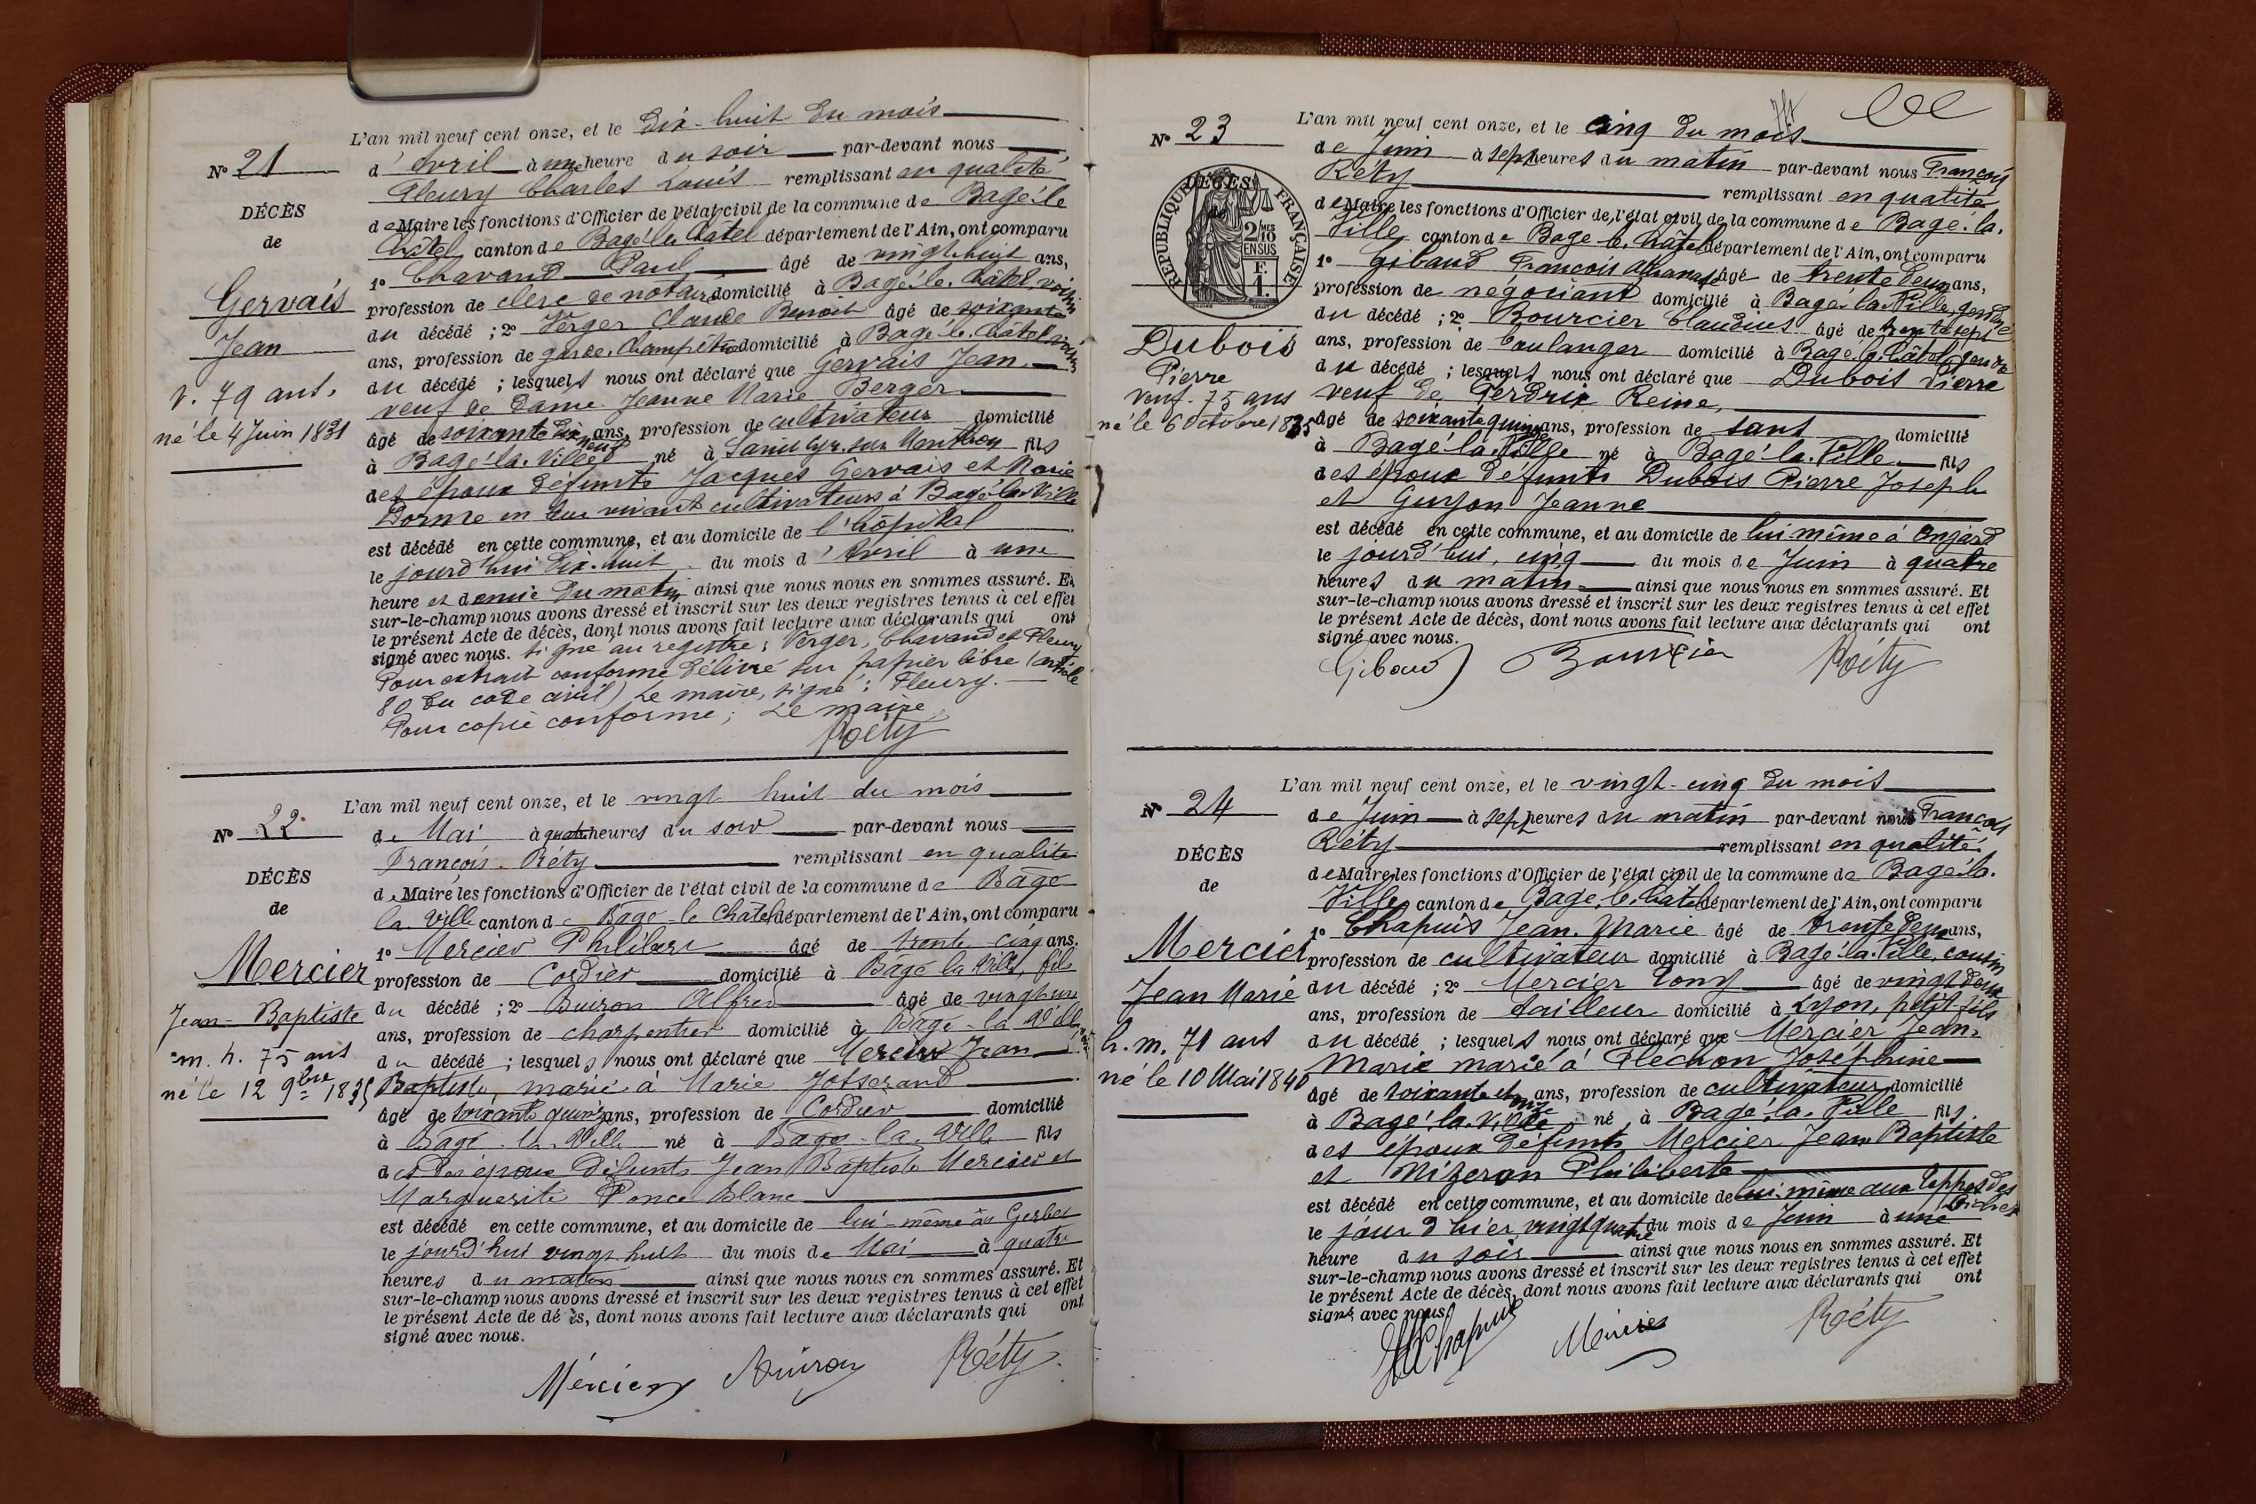 L'an mil neuf cent onze, et le dix-huit du mois
N° 21
d'Avril à une heure du soir par-devant nous
Fleury Charles Louis remplissant en qualité
DÉCÈS
de Maire les fonctions d'Officier de l'état civil de la commune de Bagé-le
de
Châtel canton de Bagé-le-Châtel département de l'Ain, ont comparu
1° Chavand Paul âgé de vingt huit ans,
Gervais
profession de clerc de notaire domicilié à Bagé-le-Châtel, voisin
du décédé ; 2° Verger Claude Benoit âgé de soixante
Jean
ans, profession de garde-champêtre domicilié à Bagé-le-Châtel voisin
v. 79 ans.
du décédé ; lesquels nous ont déclaré que Gervais Jean
veuf de Dame Jeanne Marie Berger
né le 4 Juin 1831
âgé de soixante dix neuf ans, profession de cultivateur domicilié
à Bagé-la-Ville né à Saint Cyr-sur Menthon fils
des époux défunts Jacques Gervais et Marie
Dorme en leur vivant cultivateurs à Bagé-la-Ville
est décédé en cette commune, et au domicile de l'hôpital
le jourd'hui dix-huit du mois d'Avril à une
heure et demie du matin ainsi que nous nous en sommes assuré. Et
sur-le-champ nous avons dressé et inscrit sur les deux registres tenus à cet effet
le présent Acte de décès, dont nous avons fait lecture aux déclarants qui ont
signé avec nous. signé au registre ; Verger, Chavand et Fleury
Pour extrait conforme délivré sur papier libre (article
80 du code civil) Le maire, signé : Fleury.
Pour copie conforme ; Le maire
Réty
L'an mil neuf cent onze, et le vingt huit du mois
N° 22
de Mai à quatre heures du soir par-devant nous
François Réty remplissant en qualité
DÉCÈS
de Maire les fonctions d'Officier de l'état civil de la commune de Bagé
de
la Ville canton de Bagé-le-Châtel département de l'Ain, ont comparu
1° Mercier Philibert âgé de trente cinq ans,
Mercier
profession de Cordier domicilié à Bagé la Ville, fils
Jean-Baptiste
du décédé ; 2° Buiron Alfred âgé de vingt un
ans, profession de charpentier domicilié à Bagé-la-Ville
m. h. 75 ans
du décédé ; lesquels nous ont déclaré que Mercier Jean
né le 12 9bre 1835
Baptiste, marié à Marie Josserand
âgé de soixante quinze ans, profession de Cordier domicilié
à Bagé-la-Ville né à Bagé-la-Ville fils
des des époux défunts Jean Baptiste Mercier et
Marguerite Ponce Blanc
est décédé en cette commune, et au domicile de lui-même au Gerbet
le jourd'hui vingt huit du mois de Mai à quatre
heures du matin ainsi que nous nous en sommes assuré. Et
sur-le-champ nous avons dressé et inscrit sur les deux registres tenus à cet effet
le présent Acte de décès, dont nous avons fait lecture aux déclarants qui ont
signé avec nous.
Mércier Buiron Réty
L'an mil neuf cent onze, et le cinq du mois
N° 23
de Juin à sept heures du matin par-devant nous François
Réty remplissant en qualité
RÉPUBLIQUE FRANÇAISE
2/10 EN SUS
F. 1.
DÉCÈS
de
de Maire les fonctions d'Officier de l'état civil de la commune de Bagé-la-
Ville canton de Bagé-le-Châtel département de l'Ain, ont comparu
1° Gibaud François âgé de trente deux ans,
profession de négociant domicilié à Bagé-la-Ville, gendre
du décédé ; 2° Bourcier Claudius âgé de trente sept
Dubois
ans, profession de boulanger domicilié à Bagé-le-Châtel, gendre
Pierre
du décédé ; lesquels nous ont déclaré que Dubois Pierre
veuf. 75 ans
veuf de Perdrix Reine,
né le 6 Octobre 1835
âgé de soixante quinze ans, profession de sans domicilié
à Bagé-la-Ville né à Bagé-la-Ville fils
des époux défunts Dubois Pierre Joseph
et Guyon Jeanne
est décédé en cette commune, et au domicile de lui-même à Onjard
le jourd'hui, cinq du mois de Juin à quatre
heures du matin ainsi que nous nous en sommes assuré. Et
sur-le-champ nous avons dressé et inscrit sur les deux registres tenus à cet effet
le présent Acte de décès, dont nous avons fait lecture aux déclarants qui ont
signé avec nous.
Gibaud Bourcier Réty
L'an mil neuf cent onze, et le vingt-cinq du mois
N° 24
de Juin à sept heures du matin par-devant nous François
Réty remplissant en qualité
DÉCÈS
de Maire les fonctions d'Officier de l'état civil de la commune de Bagé-la-
de
Ville canton de Bagé-le-Châtel département de l'Ain, ont comparu
1° Chapuis Jean-Marie âgé de trente deux ans,
Mercier
profession de cultivateur domicilié à Bagé-la-Ville, cousin
Jean Marie
du décédé ; 2° Mercier Tony âgé de vingt deux
ans, profession de tailleur domicilié à Lyon, petit fils
h. m. 71 ans
du décédé ; lesquels nous ont déclaré que Mercier Jean-
Marie marié à Fléchon Joséphine
né le 10 Mai 1840
âgé de soixante et onze ans, profession de cultivateur domicilié
à Bagé-la-Ville né à Bagé-la-Ville fils
des époux défunts Mercier Jean Baptiste
et Mizeron Philiberte
est décédé en cette commune, et au domicile de lui-même aux Teppes des
le jour d'hier, vingt quatre du mois de Juin à une
heure du soir ainsi que nous nous en sommes assuré. Et
sur-le-champ nous avons dressé et inscrit sur les deux registres tenus à cet effet
le présent Acte de décès, dont nous avons fait lecture aux déclarants qui ont
signé avec nous.
Chapuis Mercier Réty